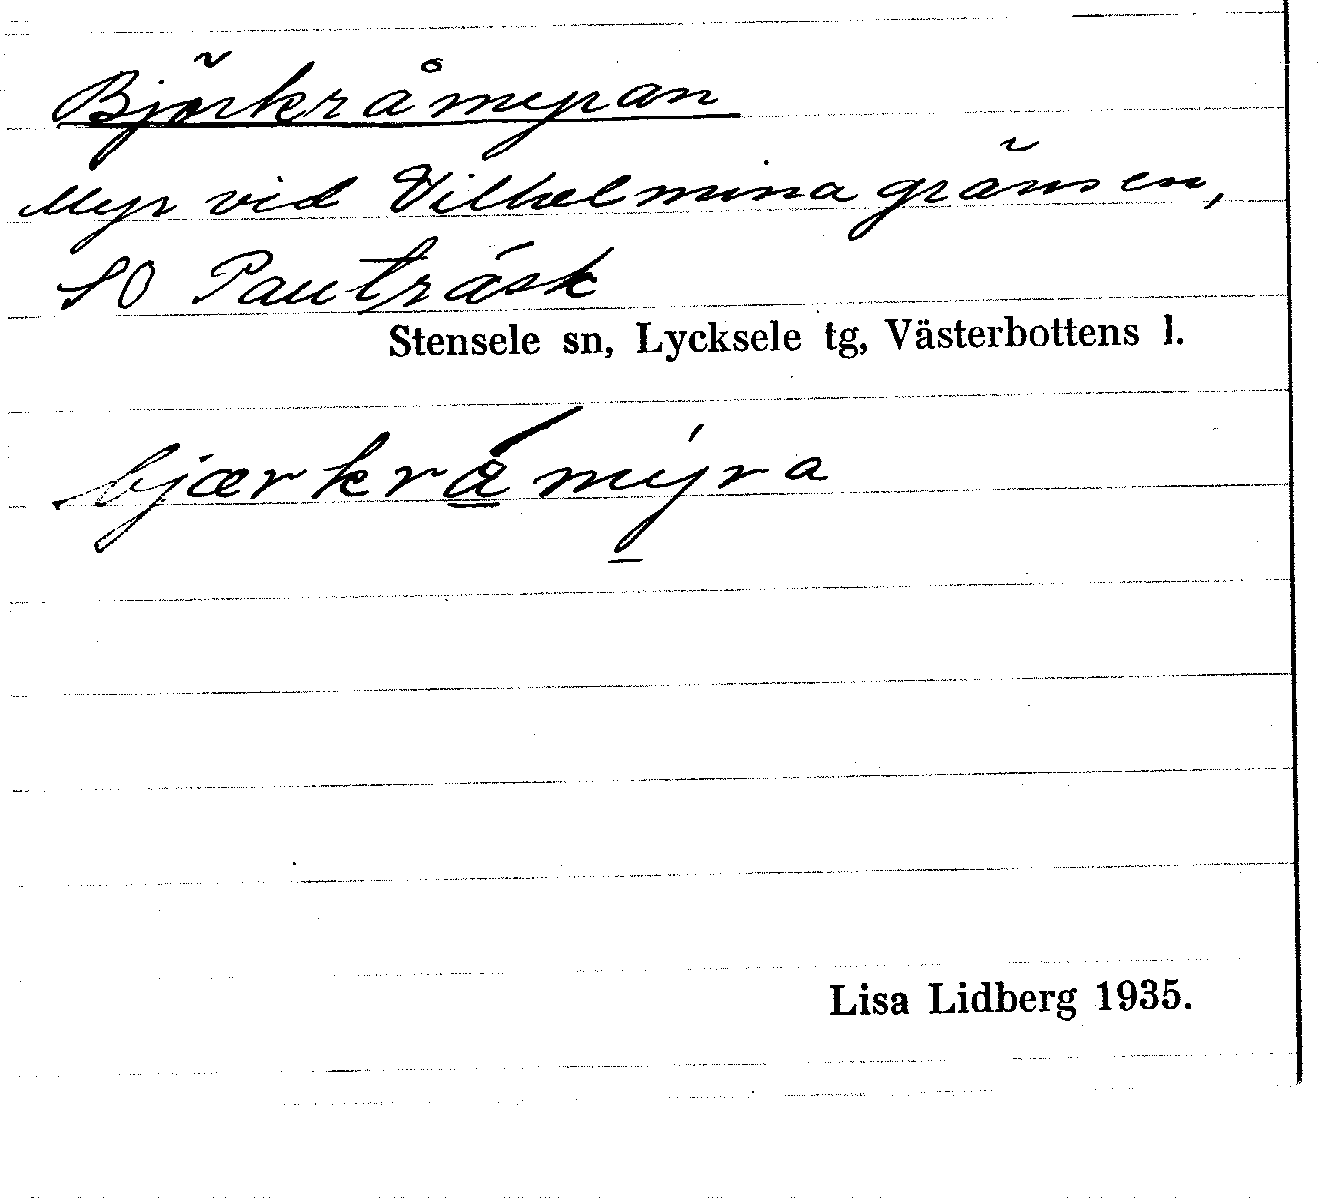 Björkråmyran
Myr vid Vilhelmina gränsen,
SO Pauträsk
Stensele sn, Lycksele tg, Västerbottens l.
bjærkrǻmýra
Lisa Lidberg 1935.